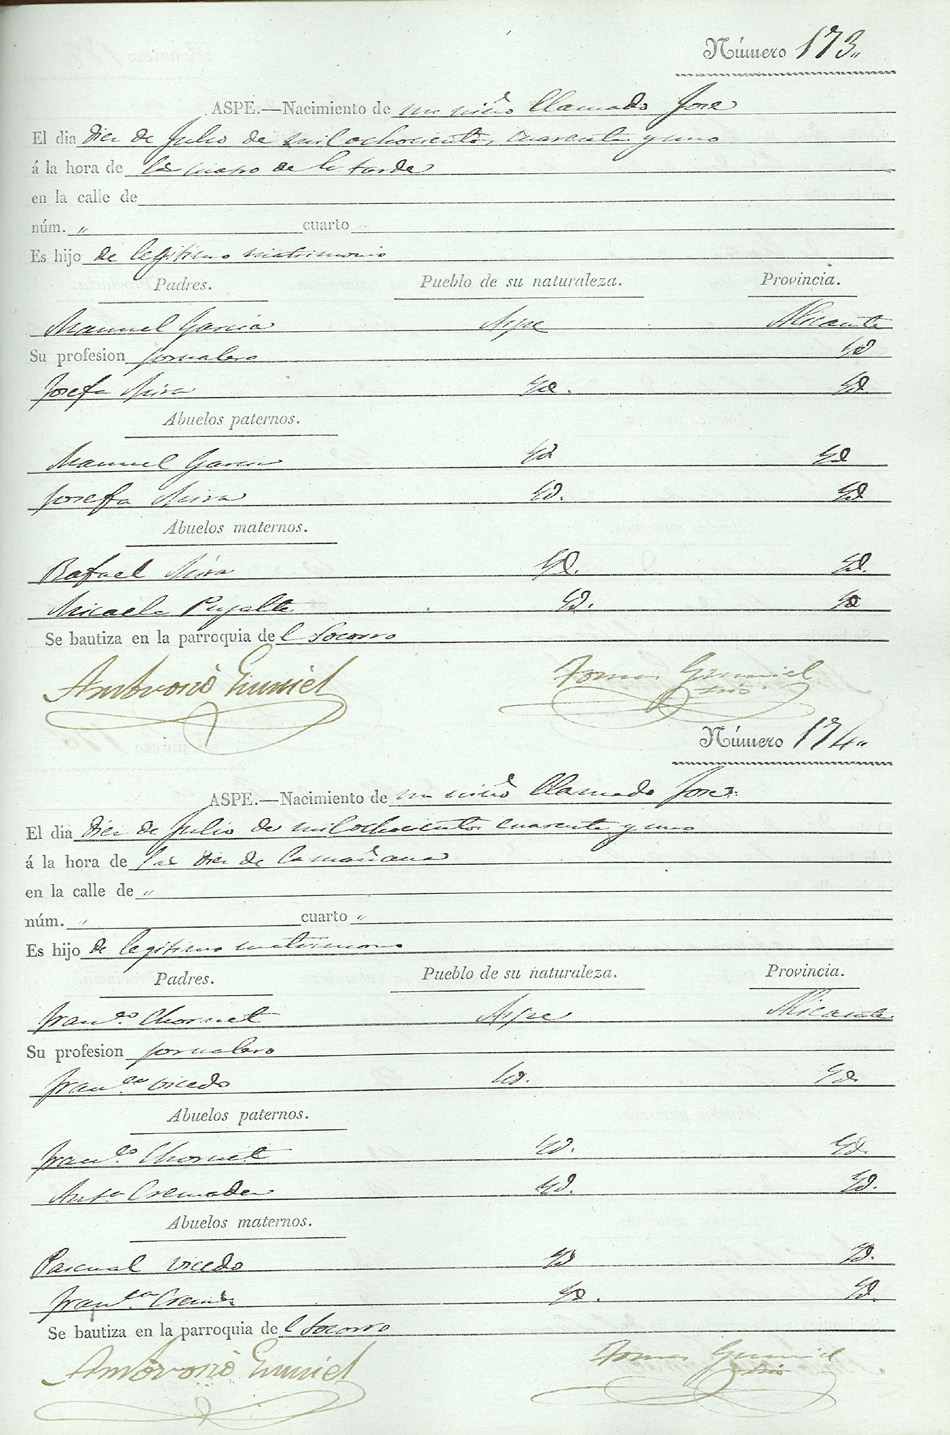 Número 173„
ASPE.—Nacimiento de un niño llamado Jose
El dia diez de Julio de mil ochocientos, cuarenta y uno
á la hora de las de la tarde
en la calle de
núm. „ cuarto „
Es hijo de legitimo matrimonio
Padres. Pueblo de su naturaleza. Provincia.
Manuel Garcia Aspe Alicante
Su profesion jornalero Yd
Josefa Mira Yd. Yd.
Abuelos paternos.
Manuel Garcia Yd Yd
Joseffa Mira Yd. Yd
Abuelos maternos.
Rafael Mira Yd. Yd.
Micaela Pujalte Yd. Yd
Se bautiza en la parroquia del Socorro
Ambrosio Tomas
Número 174„
ASPE.—Nacimiento de un niño llamado Jose
El dia diez de Julio de mil ochocientos cuarenta y uno
á la hora de las diez de la mañana
en la calle de „
núm. „ cuarto „
Es hijo de legitimo matrimonio
Padres. Pueblo de su naturaleza. Provincia.
Franco. Chornet Aspe Alicante
Su profesion jornalero
Franca Vicedo Yd. Yd.
Abuelos paternos.
Franco. Chornet Yd. Yd.
Anta Cremades Yd. Yd.
Abuelos maternos.
Pascual Vicedo Yd Yd.
Franca Yd. Yd.
Se bautiza en la parroquia del Socorro
Ambrosio Tomas